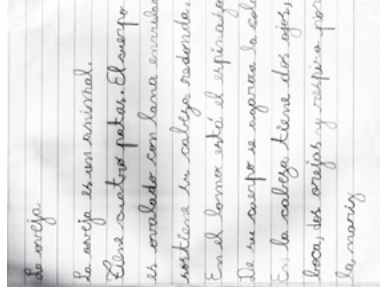 La oveja
La oveja es un animal.
Tiene cuatro patas. El cuerpo
es ovalado con lana enrulada
sostiene su cabeza redonda.
En el lomo está el espinazo
De su cuerpo se agarra la cola
En la cabeza tiene dos ojos,
boca, dos orejas y respira por
la nariz